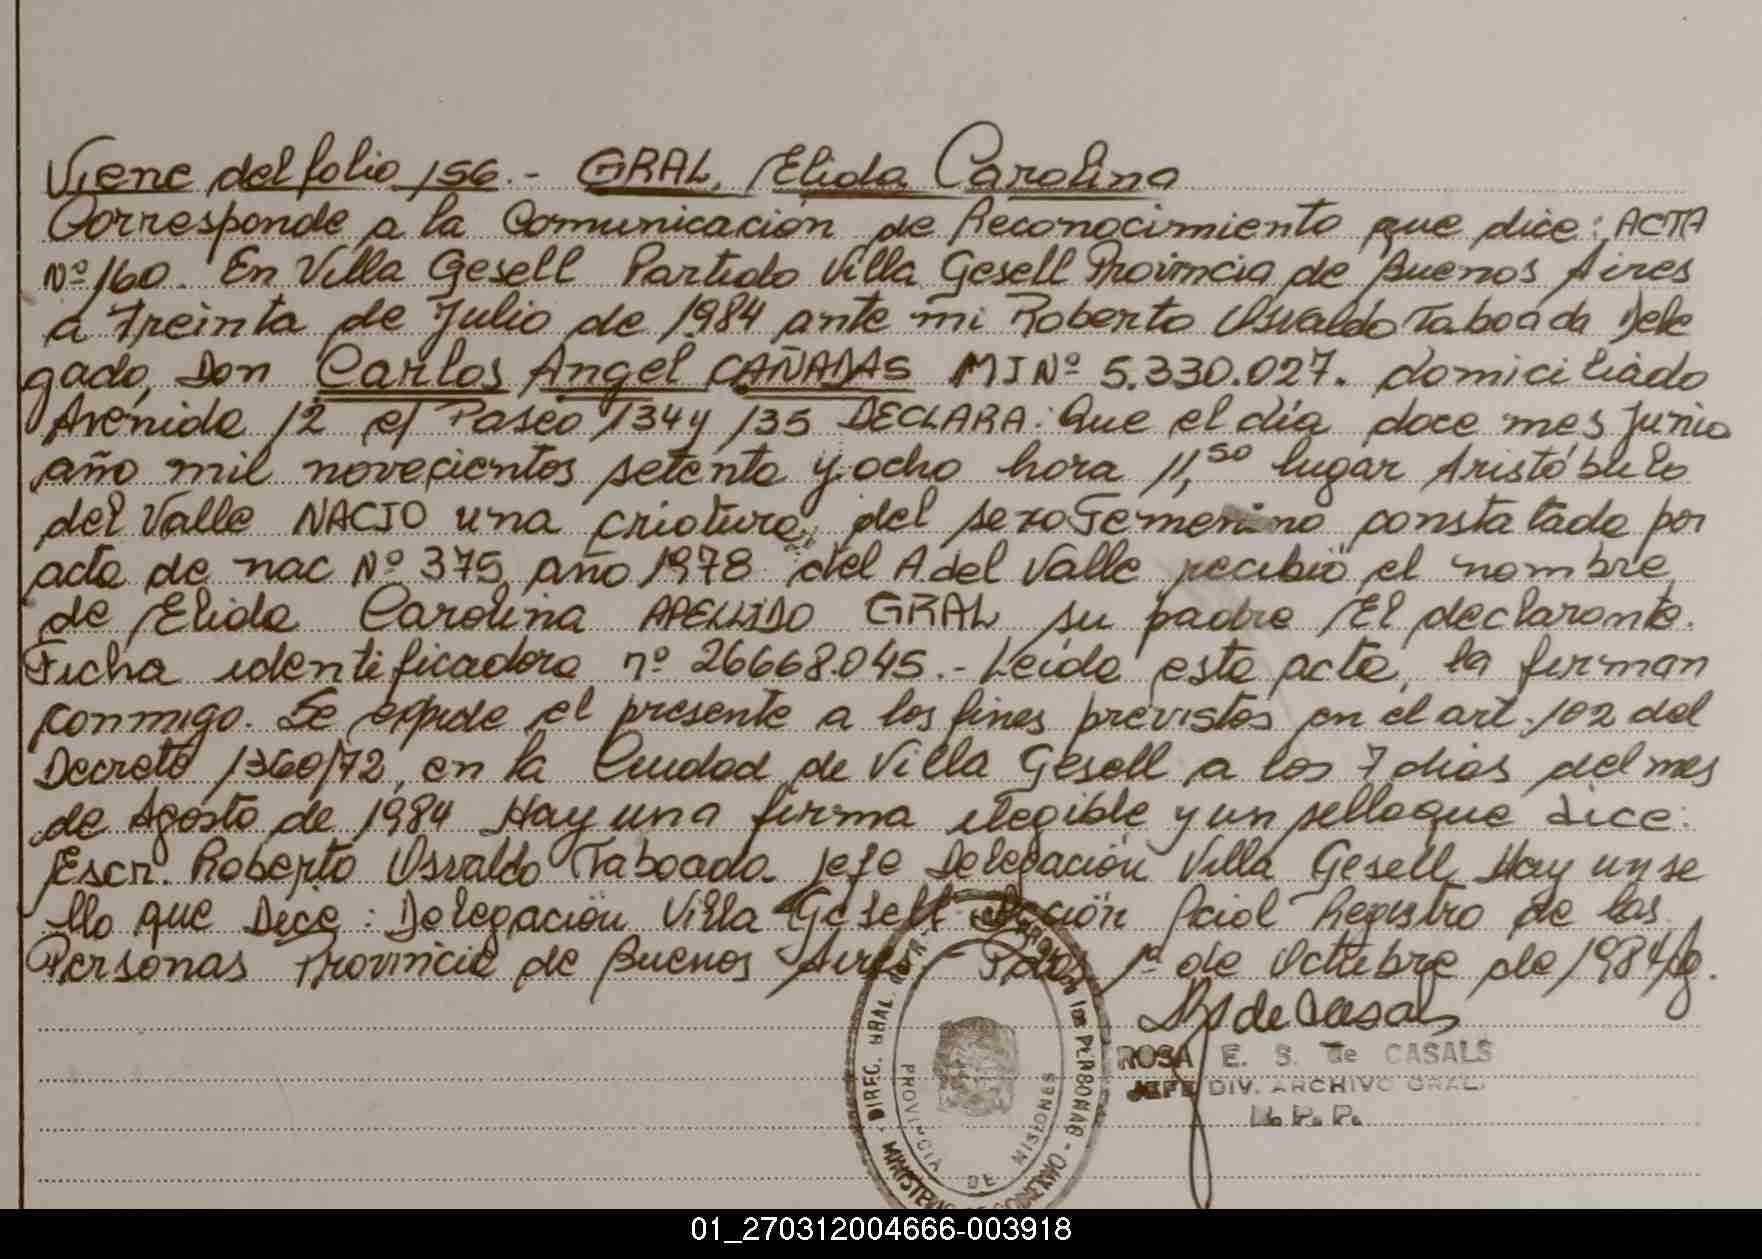 Viene del folio 156.- GRAL, Elida Carolina
Corresponde a la Comunicación de Reconocimiento que dice: ACTA
Nº 160. En Villa Gesell Partido Villa Gesell Provincia de Buenos Aires
a Treinta de Julio de 1984 ante mi Roberto Osvaldo Taboada Dele
gado, Don Carlos Angel CAÑADAS MI Nº 5.330.027. domiciliado
Avenida 12 e/ Paseo 134 y 135 DECLARA: Que el día doce mes Junio
año mil novecientos setenta y ocho hora 11,50 lugar Aristóbulo
del Valle NACIO una criatura del sexo Femenino constatada por
acta de nac Nº 375 año 1978 del A del Valle recibió el nombre
de Elida Carolina APELLIDO GRAL su padre El declarante.
Ficha identificadora nº 26668.045.- Leída esta acta, la firman
conmigo. Se expide el presente a los fines previstos en el art. 102 del
Decreto 1360/72, en la Ciudad de Villa Gesell a los 7 dias del mes
de Agosto de 1984 Hay una firma ilegible y un sello que dice:
Escr. Roberto Osvaldo Taboada Jefe Delegación Villa Gesell Hay un se
llo que Dice: Delegación Villa Gesell Registro de las
Personas Provincia de Buenos Aires, Pdas 1º de Octubre de 1984
de Casals
ROSA E. S. de CASALS
JEFE DIV. ARCHIVO GRAL.
R. P. P.
DIREC. GRAL. PERSONAS
PROVINCIA DE MISIONES
MINISTERIO DE GOBIERNO
01_270312004666-003918